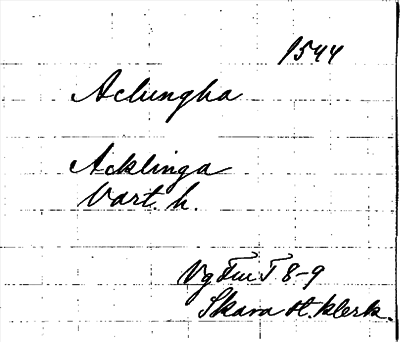 1544
Aclungha
Acklinga
Vart. h.
Vg Fmt I 8-9
Skara st. klerk.